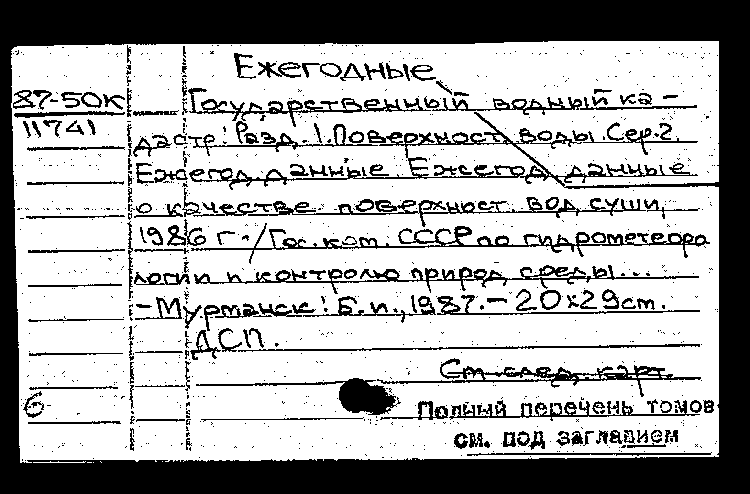 Ежегодные
87-50К Государственный водный ка-
11741 дастр: Разд. 1. Поверхност. воды. Сер. 2.
Ежегод. данные. Ежегод. данные
о качестве поверхност. вод суши,
1986 г. / Гос. ком. СССР по гидрометеоро
логии и контролю природ. среды...
- Мурманск: Б. и., 1987. - 20х29 см.
ДСП.
См. след. карт.
6 Полный перечень томов
см. под заглавием